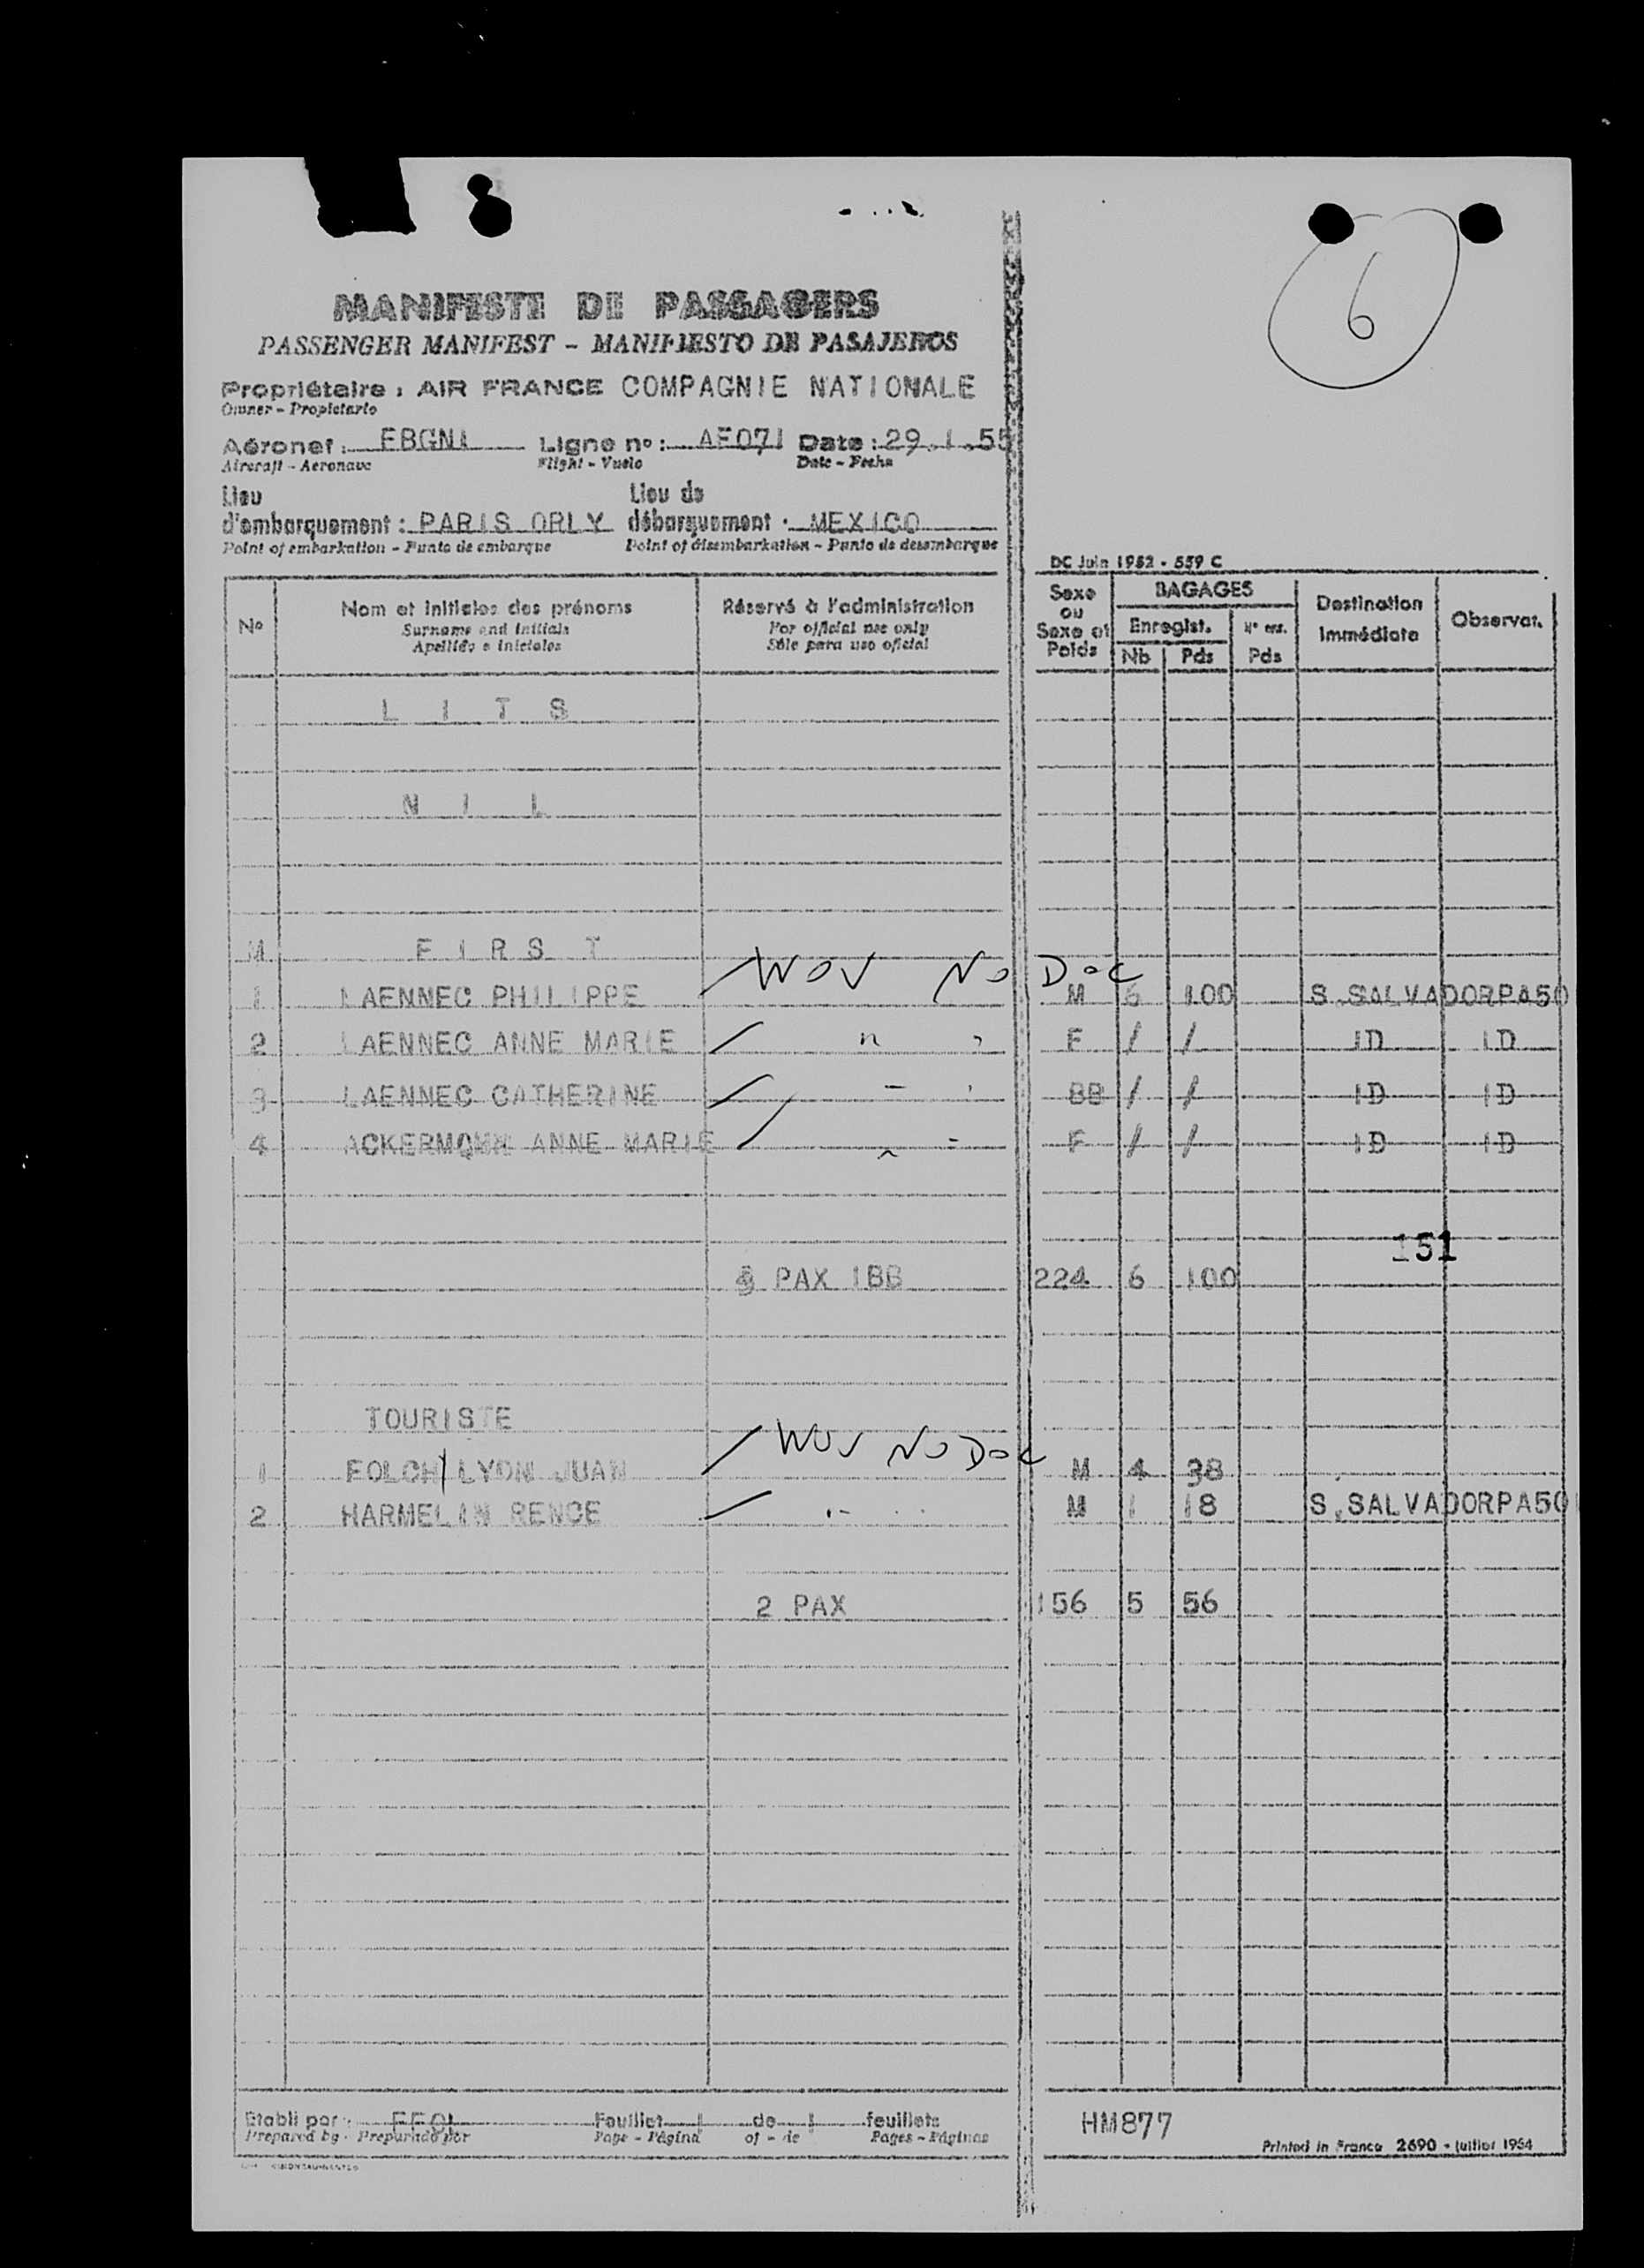 6
MANIFESTE DE PASSAGERS
PASSENGER MANIFEST - MANIFIESTO DE PASAJEROS
Propriétaire : AIR FRANCE COMPAGNIE NATIONALE
Owner - Propietario
Aéronef : FBGNI Ligne n° : AF071 Date : 29.1.55
Aircraft - Aeronave Flight - Vuelo Date - Fecha
Lieu d'embarquement : PARIS ORLY Lieu de débarquement : MEXICO
Point of embarkation - Punto de embarque Point of disembarkation - Punto de desembarque
DC Juin 1952 - 559 C
N° Nom et initiales des prénoms Réservé à l'administration Sexe ou Sexe et Poids BAGAGES Destination Immédiate Observat.
Surname and initials For official use only Enregist. N° enr.
Apellido e iniciales Sólo para uso oficial Nb Pds Pds
L I T S
N I L
M F I R S T
1 LAENNEC PHILIPPE WOV NO DOC M 6 100 S.SALVADORPA50
2 LAENNEC ANNE MARIE " F / / ID ID
3 LAENNEC CATHERINE BB / / ID ID
4 ANNE MARIE F / / ID ID
151
PAX 1BB 224 6 100
TOURISTE
1 FOLCH LYON JUAN WOV NO DOC M 4 38
2 HARMELIN M 1 18 S.SALVADORPA50
2 PAX 156 5 56
Etabli par : Feuillet 1 de 1 feuillets
Prepared by - Preparado por Page - Página of - de Pages - Páginas
HM877
Printed in France 2690 - juillet 1954